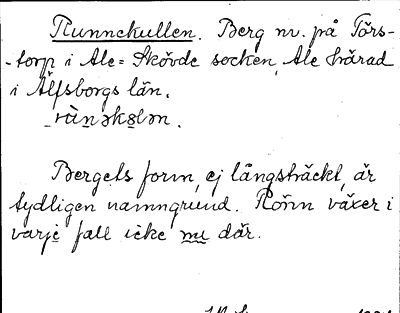 Runnekullen. Berg nv. på Törs-
-torp i Ale-Skövde socken, Ale härad
i Älfsborgs län.
Bergets form, ej långsträckt, är
tydligen namngrund. Rönn växer i
varje fall icke nu där.